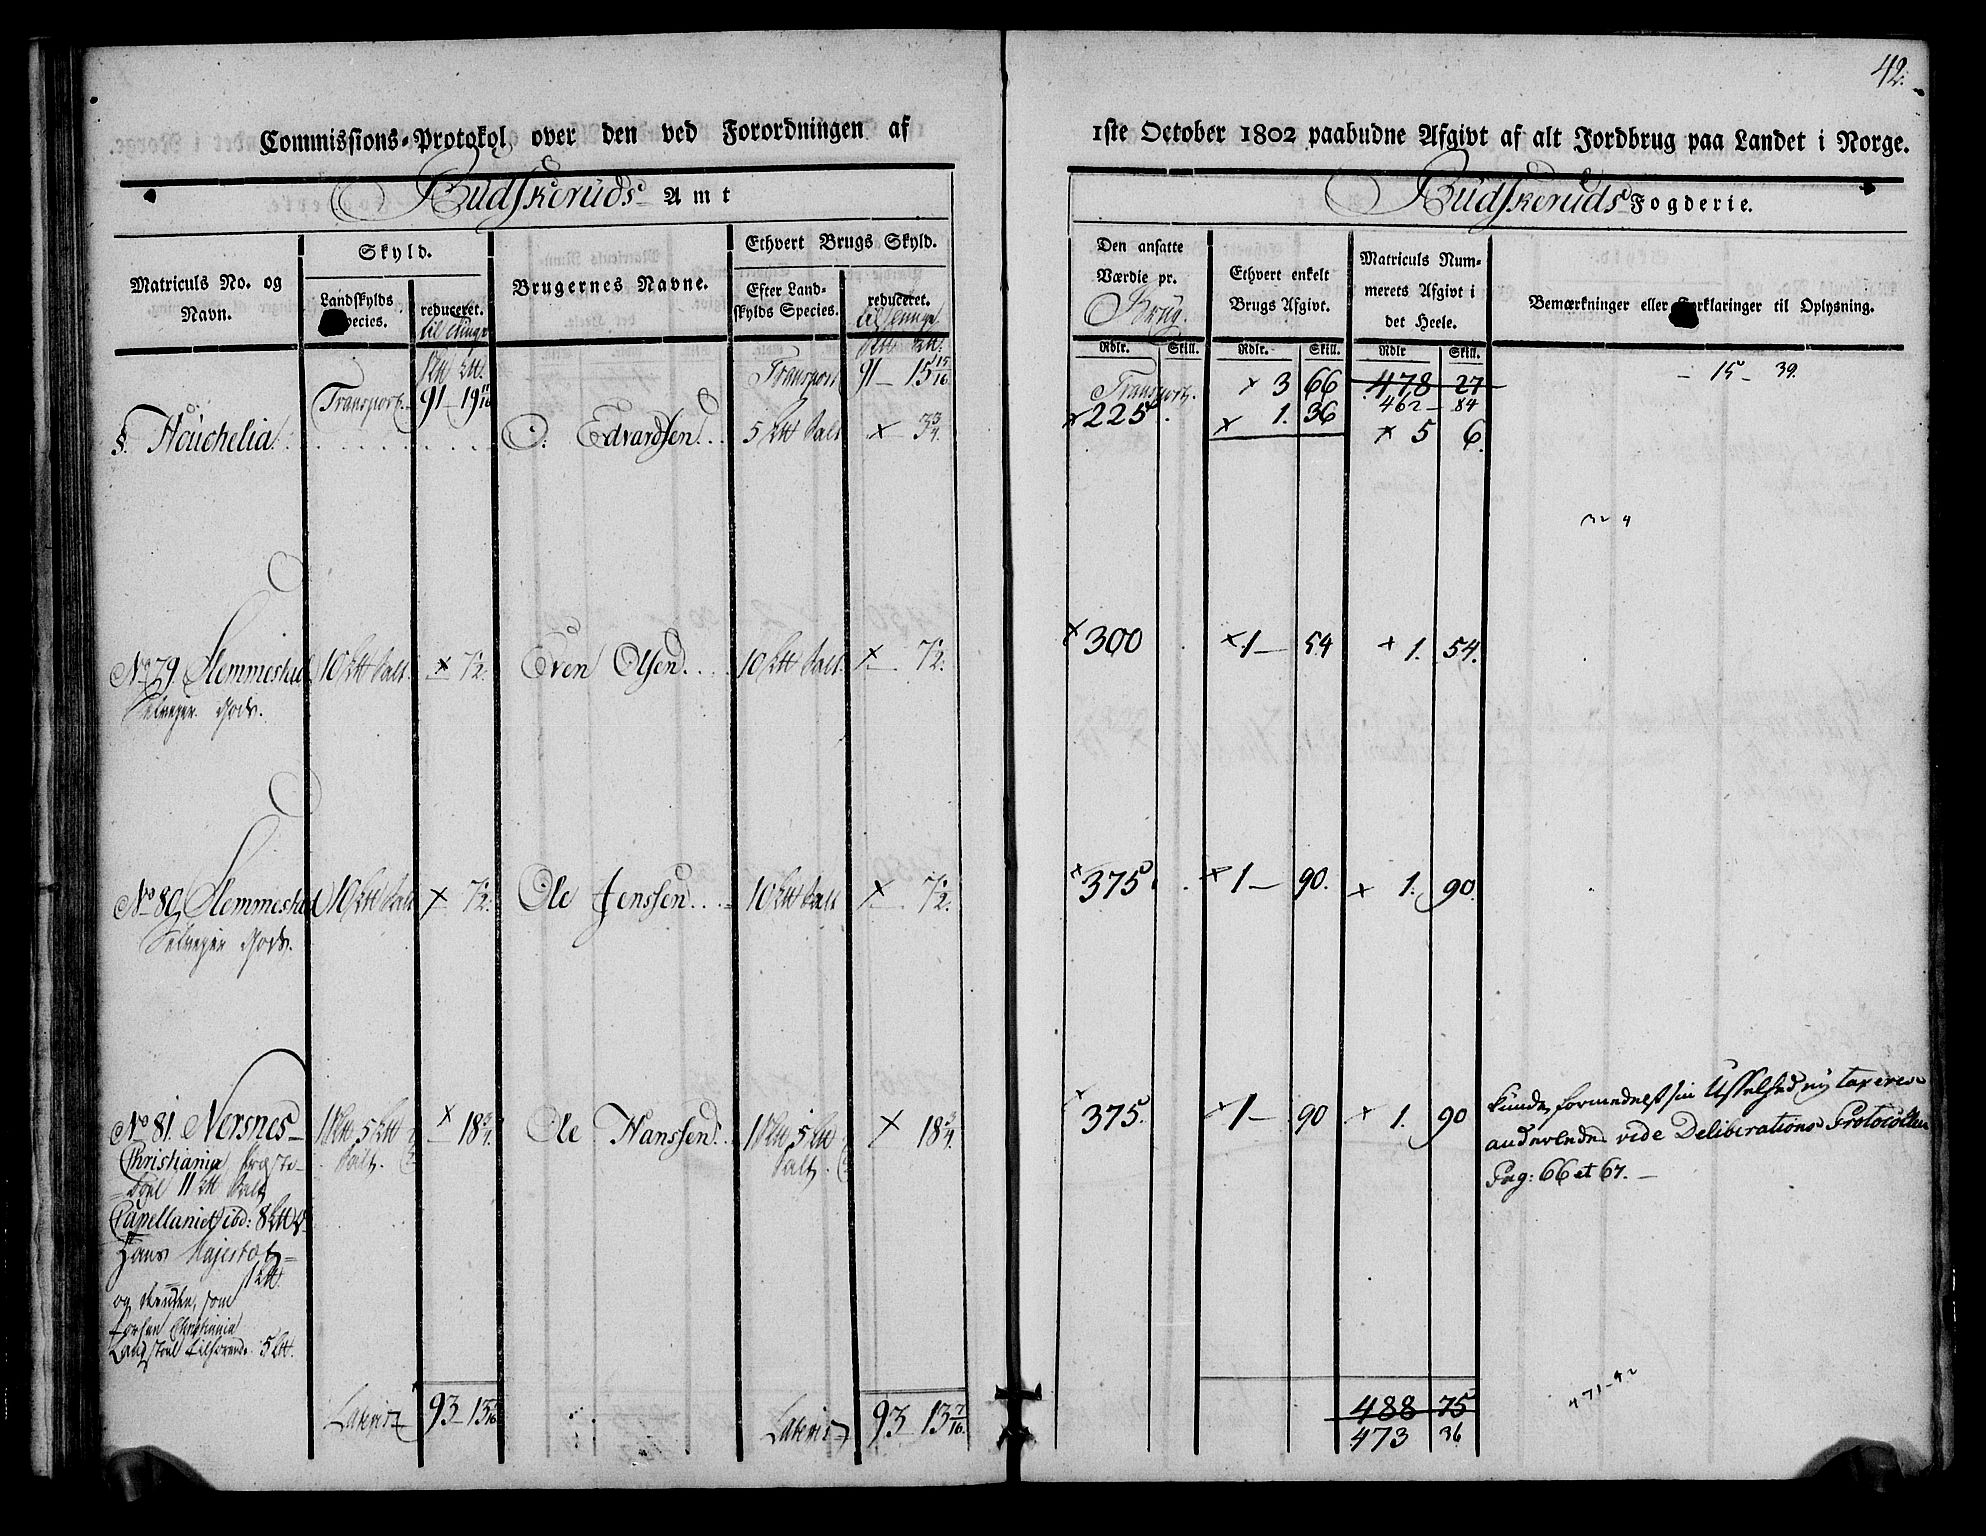 42.
Commissions-Protokol over den ved Forordningen af
1ste October 1802 paabudne Afgivt af alt Jordbrug paa Landet i Norge.
Budskeruds Amt
Budskeruds Fogderie.
Matriculs No. og Navn.
Skyld.
Landskylds Species.
reduceret.
til Tunge
Brugernes Navne.
Ethvert Brugs Skyld.
Efter Landskylds Species.
reduceret.
til Tunge
Den ansatte Værdie pr.
Brug.
Ethvert enkelt Brugs Afgivt.
Matriculs Nummerets Afgivt i det Heele.
Bemærkninger eller Forklaringer til Oplysning.
Rdlr. Skill. Rdlr. Skill. Rdlr Skill.
Transport. 91 - 19 11/16 Transport 91 - 15 15/16 Transport. × 3 66 478 27 - 15 - 39.
462 - 84
§. Houchelia. O. Edvardsen 5 Ltt Salt × 3 3/4. × 225. × 1. 36 × 5 6.
32 4
No 79 Slemmestad 10 Ltt Salt. × 7 1/2. Even Olsen 10 Ltt Salt. × 7 1/2. × 300 × 1 - 54 × 1. 54.
Selveger Gods.
No 80 Slemmestad 10 Ltt Salt × 7 1/2. Ole Jenssen 10 Ltt Salt × 7 1/2. × 375. × 1 - 90. × 1. 90.
Selveger Gods.
No 81. Nersnes 5 Ltt Salt × 18 3/4. Ole Hanssen 5 Ltt Salt × 18 3/4 × 375. × 1 - 90 × 1. 90
Kunde, formedelst sin Usselhed ej taxeres
anderledes vide Deliberations Protocollen
Pag: 66 et 67. -
Christiania Præste-
boel 11 Ltt Salt
Capellaniet ibd: 8 Ltt
Hans Majestæt
1 Ltt.
og som
forhen Christiania
tilhørende 5 Ltt.
Lateris 93 - 13 Lateris 93 13 7/16. 488 75
473 36
471-42